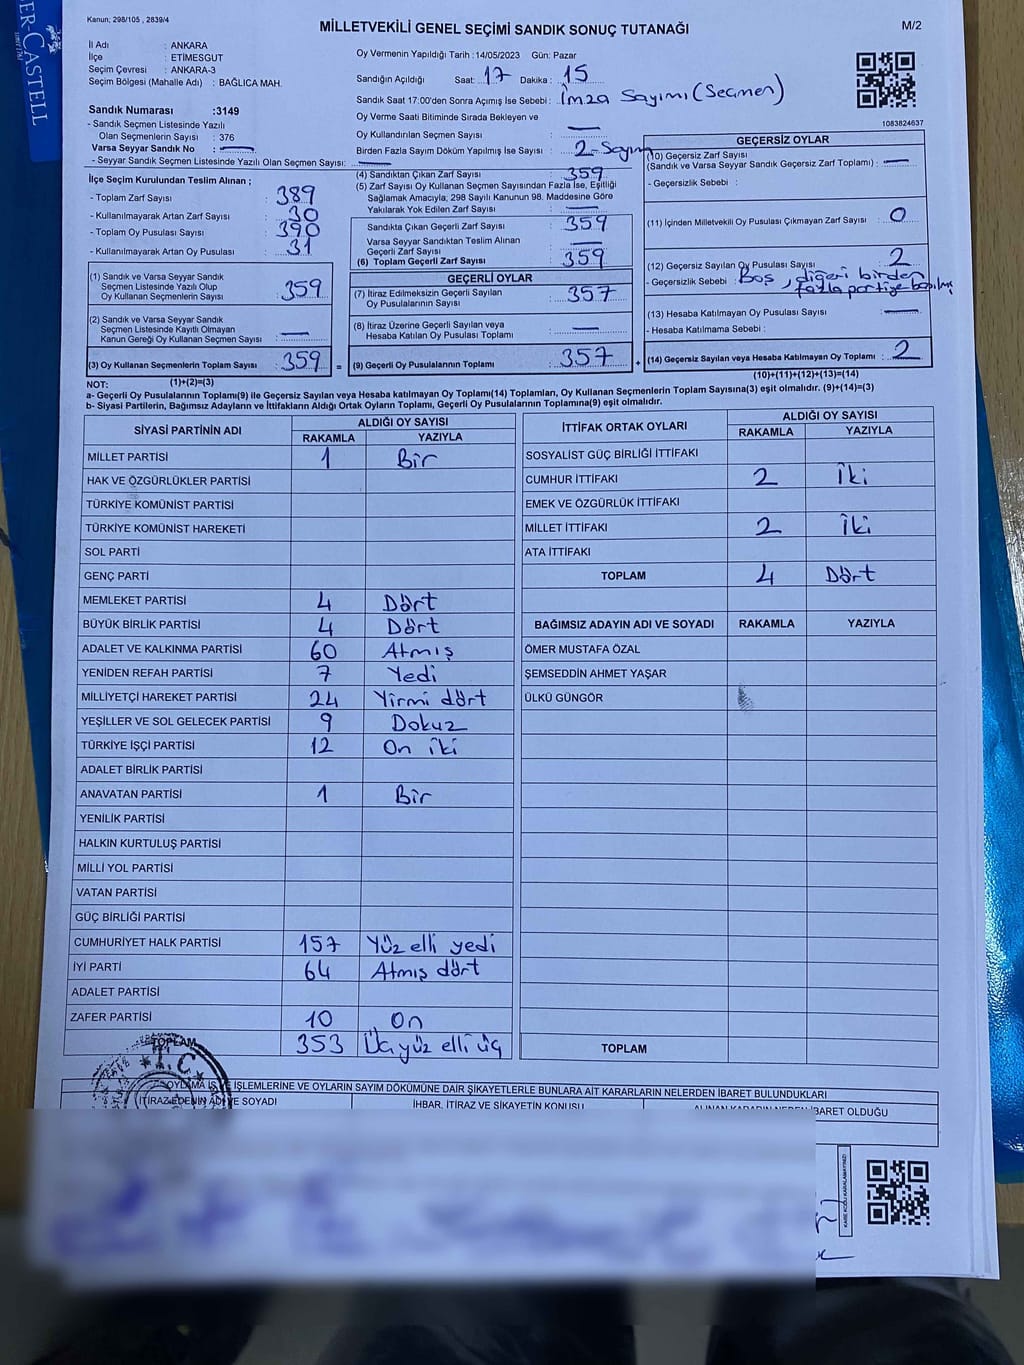 ER-CASTELL
since 1761
Kanun: 298/105 , 2839/4
MİLLETVEKİLİ GENEL SEÇİMİ SANDIK SONUÇ TUTANAĞI
M/2
İl Adı : ANKARA
İlçe : ETİMESGUT
Seçim Çevresi : ANKARA-3
Seçim Bölgesi (Mahalle Adı) : BAĞLICA MAH.
Sandık Numarası :3149
- Sandık Seçmen Listesinde Yazılı
Olan Seçmenlerin Sayısı : 376
Varsa Seyyar Sandık No : —
- Seyyar Sandık Seçmen Listesinde Yazılı Olan Seçmen Sayısı: —
Oy Vermenin Yapıldığı Tarih : 14/05/2023 Gün: Pazar
Sandığın Açıldığı Saat: 17 Dakika : 15
Sandık Saat 17:00'den Sonra Açımış İse Sebebi : İmza Sayımı (Seçmen)
Oy Verme Saati Bitiminde Sırada Bekleyen ve
Oy Kullandırılan Seçmen Sayısı : —
Birden Fazla Sayım Döküm Yapılmış İse Sayısı : 2-Sayım
1083824637
İlçe Seçim Kurulundan Teslim Alınan ;
- Toplam Zarf Sayısı : 389
- Kullanılmayarak Artan Zarf Sayısı : 30
- Toplam Oy Pusulası Sayısı : 390
- Kullanılmayarak Artan Oy Pusulası : 31
(1) Sandık ve Varsa Seyyar Sandık
Seçmen Listesinde Yazılı Olup
Oy Kullanan Seçmenlerin Sayısı : 359
(2) Sandık ve Varsa Seyyar Sandık
Seçmen Listesinde Kayıtlı Olmayan
Kanun Gereği Oy Kullanan Seçmen Sayısı : —
(3) Oy Kullanan Seçmenlerin Toplam Sayısı : 359 =
(1)+(2)=(3)
(4) Sandıktan Çıkan Zarf Sayısı : 359
(5) Zarf Sayısı Oy Kullanan Seçmen Sayısından Fazla İse, Eşitliği
Sağlamak Amacıyla, 298 Sayılı Kanunun 98. Maddesine Göre
Yakılarak Yok Edilen Zarf Sayısı : —
Sandıkta Çıkan Geçerli Zarf Sayısı : 359
Varsa Seyyar Sandıktan Teslim Alınan
Geçerli Zarf Sayısı : —
(6) Toplam Geçerli Zarf Sayısı : 359
GEÇERLİ OYLAR
(7) İtiraz Edilmeksizin Geçerli Sayılan
Oy Pusulalarının Sayısı : 357
(8) İtiraz Üzerine Geçerli Sayılan veya
Hesaba Katılan Oy Pusulası Toplamı : —
(9) Geçerli Oy Pusulalarının Toplamı : 357 +
GEÇERSİZ OYLAR
(10) Geçersiz Zarf Sayısı
(Sandık ve Varsa Seyyar Sandık Geçersiz Zarf Toplamı) : —
- Geçersizlik Sebebi :
(11) İçinden Milletvekili Oy Pusulası Çıkmayan Zarf Sayısı : 0
(12) Geçersiz Sayılan Oy Pusulası Sayısı : 2
- Geçersizlik Sebebi : Boş, diğeri birden
fazla partiye basılmış
(13) Hesaba Katılmayan Oy Pusulası Sayısı : —
- Hesaba Katılmama Sebebi :
(14) Geçersiz Sayılan veya Hesaba Katılmayan Oy Toplamı : 2
(10)+(11)+(12)+(13)=(14)
NOT:
a- Geçerli Oy Pusulalarının Toplamı(9) ile Geçersiz Sayılan veya Hesaba katılmayan Oy Toplamı(14) Toplamları, Oy Kullanan Seçmenlerin Toplam Sayısına(3) eşit olmalıdır. (9)+(14)=(3)
b- Siyasi Partilerin, Bağımsız Adayların ve İttifakların Aldığı Ortak Oyların Toplamı, Geçerli Oy Pusulalarının Toplamına(9) eşit olmalıdır.
SİYASİ PARTİNİN ADI ALDIĞI OY SAYISI
RAKAMLA YAZIYLA
MİLLET PARTİSİ 1 Bir
HAK VE ÖZGÜRLÜKLER PARTİSİ
TÜRKİYE KOMÜNİST PARTİSİ
TÜRKİYE KOMÜNİST HAREKETİ
SOL PARTİ
GENÇ PARTİ
MEMLEKET PARTİSİ 4 Dört
BÜYÜK BİRLİK PARTİSİ 4 Dört
ADALET VE KALKINMA PARTİSİ 60 Atmış
YENİDEN REFAH PARTİSİ 7 Yedi
MİLLİYETÇİ HAREKET PARTİSİ 24 Yirmi dört
YEŞİLLER VE SOL GELECEK PARTİSİ 9 Dokuz
TÜRKİYE İŞÇİ PARTİSİ 12 On iki
ADALET BİRLİK PARTİSİ
ANAVATAN PARTİSİ 1 Bir
YENİLİK PARTİSİ
HALKIN KURTULUŞ PARTİSİ
MİLLİ YOL PARTİSİ
VATAN PARTİSİ
GÜÇ BİRLİĞİ PARTİSİ
CUMHURİYET HALK PARTİSİ 157 Yüz elli yedi
İYİ PARTİ 64 Atmış dört
ADALET PARTİSİ
ZAFER PARTİSİ 10 On
TOPLAM 353 Üçyüz elli üç
İTTİFAK ORTAK OYLARI ALDIĞI OY SAYISI
RAKAMLA YAZIYLA
SOSYALİST GÜÇ BİRLİĞİ İTTİFAKI
CUMHUR İTTİFAKI 2 İki
EMEK VE ÖZGÜRLÜK İTTİFAKI
MİLLET İTTİFAKI 2 İki
ATA İTTİFAKI
TOPLAM 4 Dört
BAĞIMSIZ ADAYIN ADI VE SOYADI RAKAMLA YAZIYLA
ÖMER MUSTAFA ÖZAL
ŞEMSEDDİN AHMET YAŞAR
ÜLKÜ GÜNGÖR
TOPLAM
T.C.
OYLAMA İŞ VE İŞLEMLERİNE VE OYLARIN SAYIM DÖKÜMÜNE DAİR ŞİKAYETLERLE BUNLARA AİT KARARLARIN NELERDEN İBARET BULUNDUKLARI
İTİRAZ EDENİN ADI VE SOYADI
İHBAR, İTİRAZ VE ŞİKAYETİN KONUSU
ALINAN KARARIN NEDEN İBARET OLDUĞU
KARE KODU KARALAMAYINIZ!